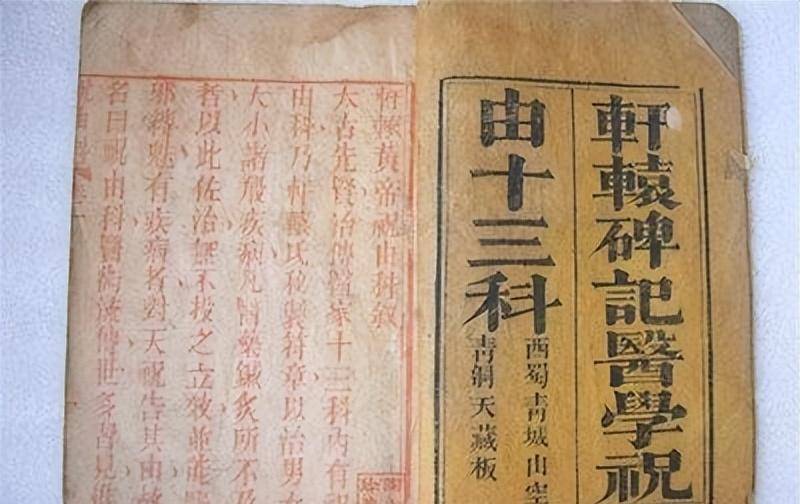 軒轅碑記醫學祝
由十三科
西蜀青城山空
青銅天藏板
軒轅黃帝祝由科敘
太古先賢治傳醫家十三科內有祝
由科乃軒轅氏秘製符章以治男女
大小諸般疾病凡醫藥鍼灸所不及
者以此佐治無不投之立效並能驅
邪縛魅有疾病者對天祝告其由故
名曰祝由科醫術流傳世多罕見進